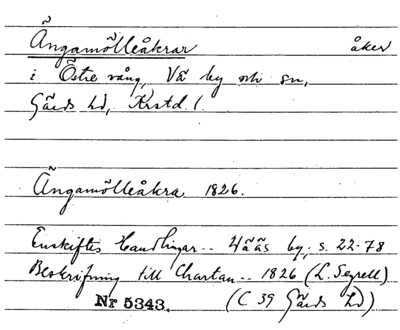 Ängamölleåkrar åker
i Östre vång, Vä by och sn,
Gärds hd, Krstd. l.
Ängamölleåkra 1826.
Enskiftes Handlingar.. Wääs by, s. 22-78
Beskrifning till Chartan.. 1826 (L. Segrell)
Nr 5343. (C 39 Gärds hd)